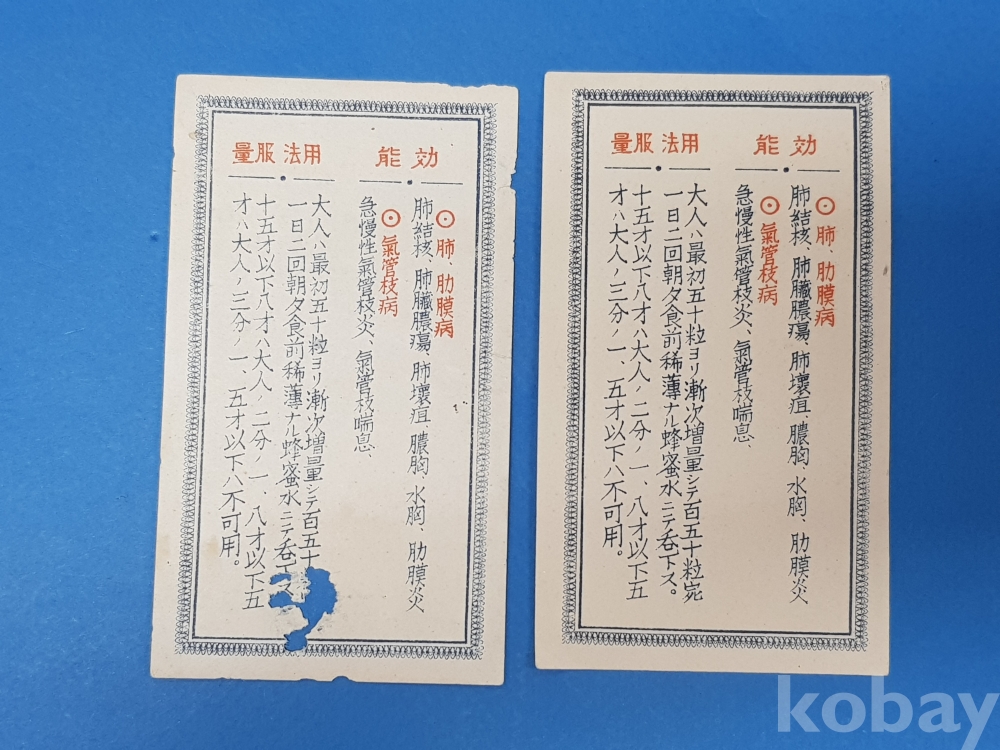 効能
⊙肺、肋膜病
肺結核、肺臓膿瘍、肺壊疽、膿胸、水胸、肋膜炎
⊙氣管枝病
急慢性氣管枝炎、氣管枝喘息
用法服量
大人ハ最初五十粒ヨリ漸次増量シテ百五十
一日二回朝夕食前稀薄ナル蜂蜜水ニテ呑下ス
十五才以下八才ハ大人ノ二分ノ一、八才以下五
才ハ大人ノ三分ノ一、五才以下ハ不可用。
効能
⊙肺、肋膜病
肺結核、肺臓膿瘍、肺壊疽、膿胸、水胸、肋膜炎
⊙氣管枝病
急慢性氣管枝炎、氣管枝喘息
用法服量
大人ハ最初五十粒ヨリ漸次増量シテ百五十粒宛
一日二回朝夕食前稀薄ナル蜂蜜水ニテ呑下ス。
十五才以下八才ハ大人ノ二分ノ一、八才以下五
才ハ大人ノ三分ノ一、五才以下ハ不可用。
kobay